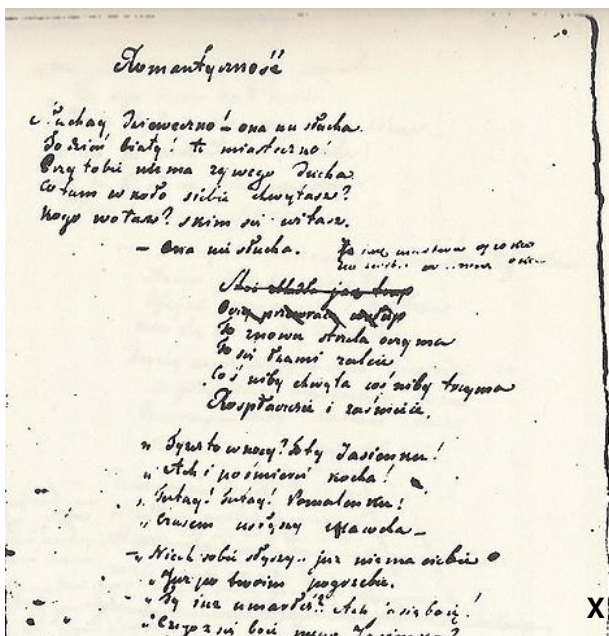 Romantyczność
Słuchay Dzieweczno! – ona nu słucha.
To dzień biały! to miasteczno!
Przy tobie niema zywego Ducha
Co tam w koło siebie chwytasz?
Kogo wołasz? skim się witasz.
– Ona nie słucha.
To iak martwa opoka
Stoi Bladła jak trup
Oczy w słup
To znowu strzela oczyma
To się łzami zaleie
Coś niby chwyta coś niby trzyma
Rospłaczesie i zaśmieie.
" Tyżeto w nocy? Toty Jasienku!
" Ach i pośmierci kocha!
" Tutay! Tutay! Pomalenku!
" Czasem usłyszy Macocha –
–" Niech sobie słyszy.. już niema ciebie
" Już po twoim pogrzebie.
" Ty iuz umarłeś? Ach ia się boię!
" Czego się boić mego Jasienka
X